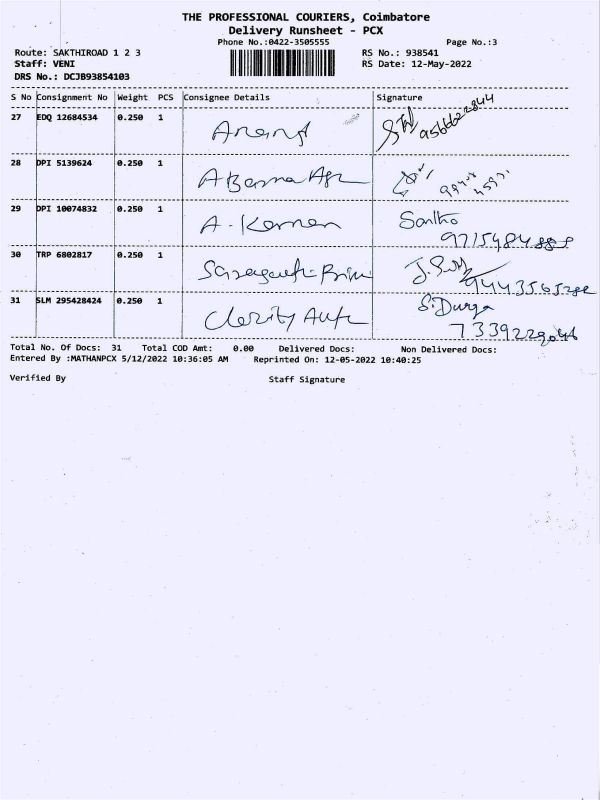 THE PROFESSIONAL COURIERS, Coimbatore
Delivery Runsheet - PCX
Phone No.:0422-3505555 Page No.:3
Route: SAKTHIROAD 1 2 3 RS No.: 938541
Staff: VENI RS Date: 12-May-2022
DRS No.: DCJB93854103
S No Consignment No Weight PCS Consignee Details Signature
27 EDQ 12684534 0.250 1 Anand
28 DPI 5139624 0.250 1
29 DPI 10074832 0.250 1 A. Kannan Santho
30 TRP 6802817 0.250 1
9443565288
31 SLM 295428424 0.250 1 Clarity S. Durga
Total No. Of Docs: 31 Total COD Amt: 0.00 Delivered Docs: Non Delivered Docs:
Entered By :MATHANPCX 5/12/2022 10:36:05 AM Reprinted On: 12-05-2022 10:40:25
Verified By Staff Signature